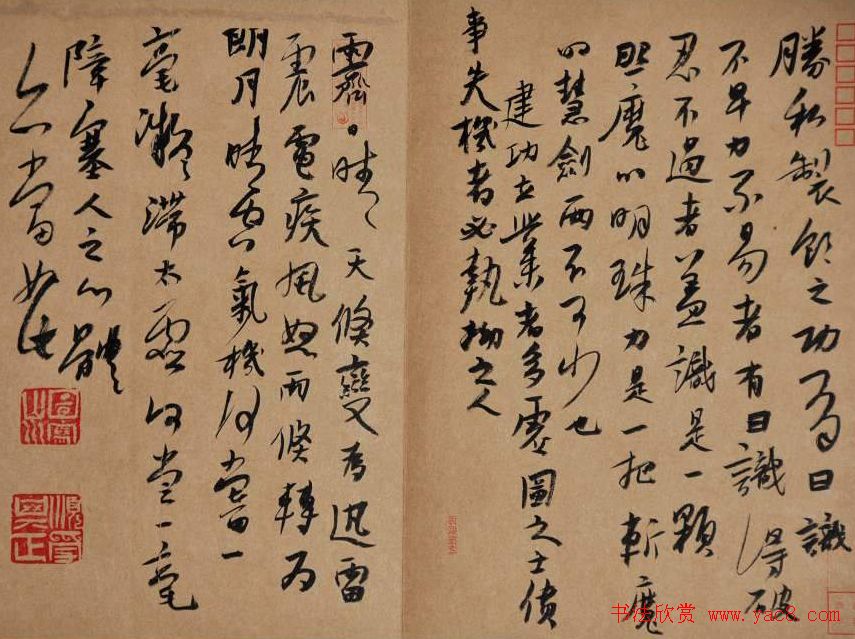 勝私製欲之功有曰識
不早力不易者有曰識得破
忍不過者蓋識是一顆
照魔的明珠力是一把斬魔
的慧劍兩不可少也
建功立業者多虛圓之士僨
事失機者必執拗之人
霽日晴天倏變為迅雷
震電疾風怒雨倏轉為
朗月晴空氣機何嘗一
毫凝滯太虛何嘗一毫
障塞人之心體
亦當如此
书法欣赏 www.yac8.com